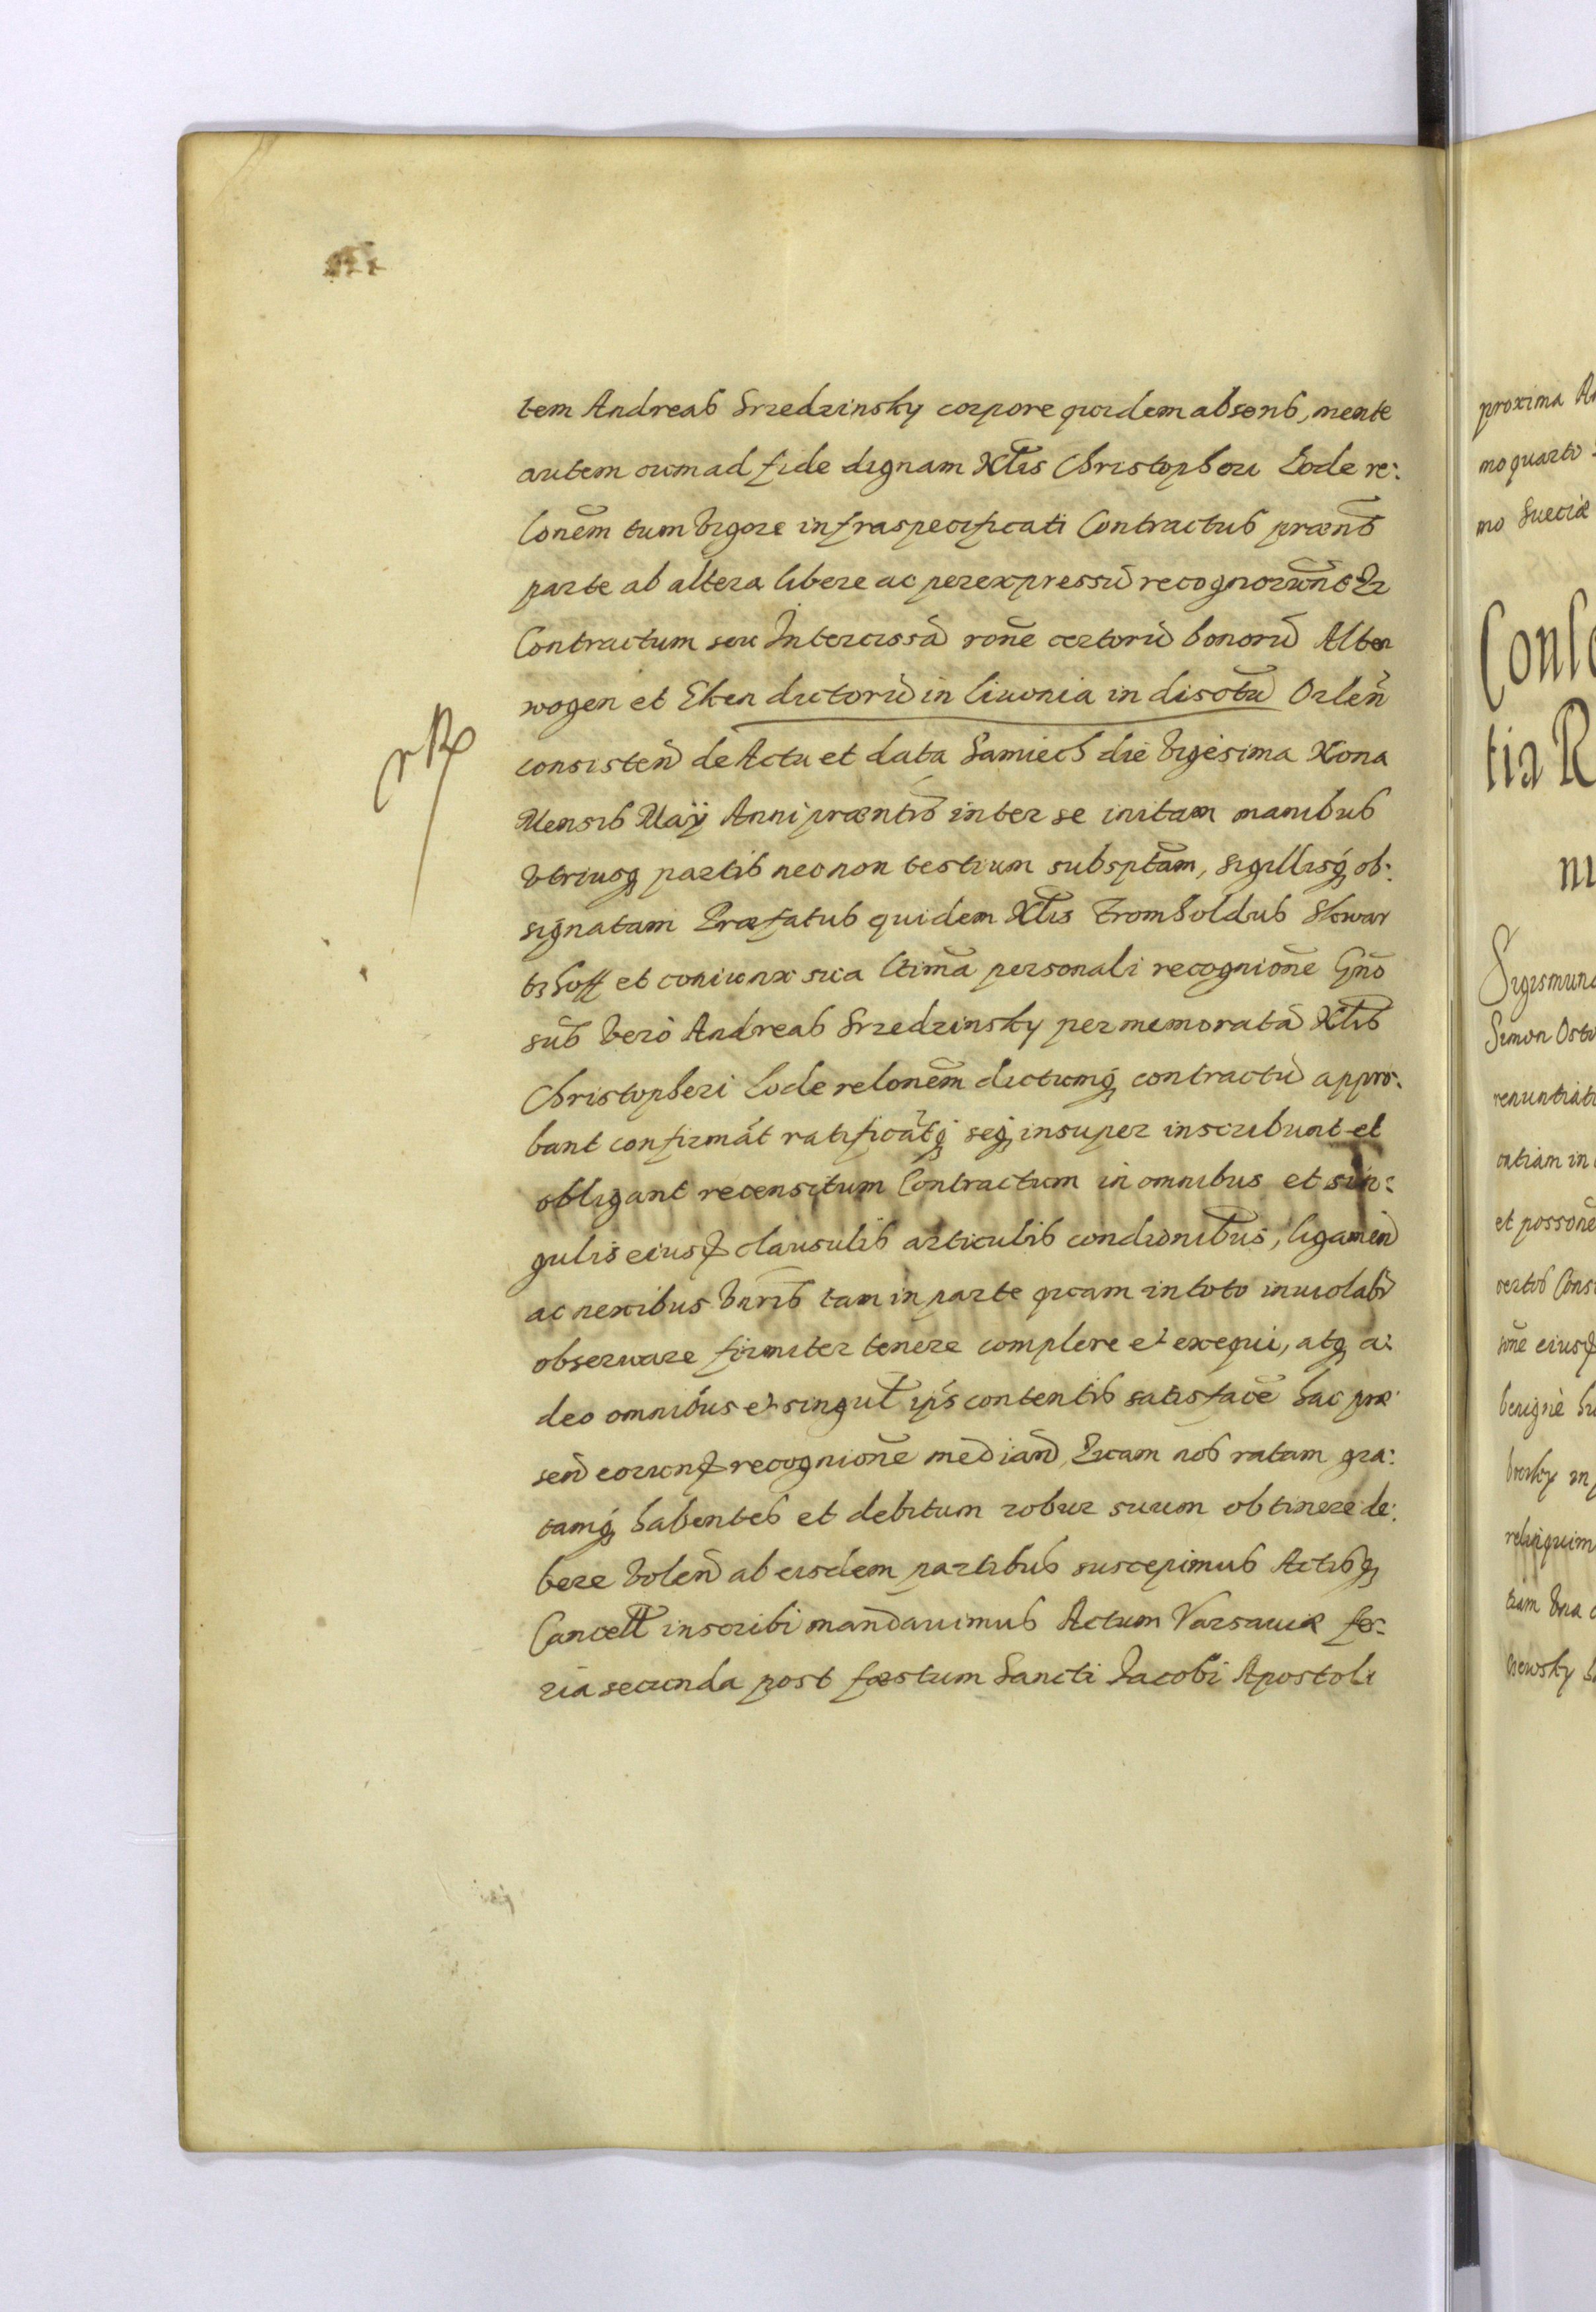 tem Andreas Srzedzinsky corpore quidem absens, mente
autem cum ad fide dignam Nlis Christopheri Lode re:
lonem tum vigore infraspecificati Contractus praens
parte ab altera libere ac per expressū recognorunt Qr
Contractum seu Intercissā rone certorū bonorū Alten
wogen et Eken dictorū in Liuonia in districtu Orlen
consisteñ de Actu et data Samiech die vigesima Nona
Mensis Maÿ Anni praentis inter se initam manibus
vtriusq partis necnon testium subsptam, sigillisq ob:
signatam Praefatus quidem Nlis Tromholdus Skwar
tzhoff et coniunx sua ltima personali recognione Gno
sus verò Andreas Srzedzinsky per memoratā Nlis
Christopheri Lode relonem dictumq contractū appro:
bant confirmāt ratificātq seq insuper inscribunt et
obligant recensitum Contractum in omnibus et sin:
gulis eiusq clausulis articulis condionibus, ligamin
ac nexibus vnris tam in parte quam in toto inuiolabr
obseruare firmiter tenere complere et exequi, atq a:
deo omnibus et singul ips contentis satisface hac prae
señ eorunq recognione mediañ, Quam nos ratam gra:
tamq habentes et debitum robur suum obtinere de:
bere voleñ ab eisdem partibus suscepimus Actisq
Cancell inscribi mandauimus Actum Varsauiae fe:
ria secunda post faestum Sancti Jacobi Apostoli
proxima
mo quarto
mo Sueciae
Cons
tia R
ni
Sigismund
Simon Ost
renuntiat
et possone
certos Cons
sone eiusq
benigne
relinquim